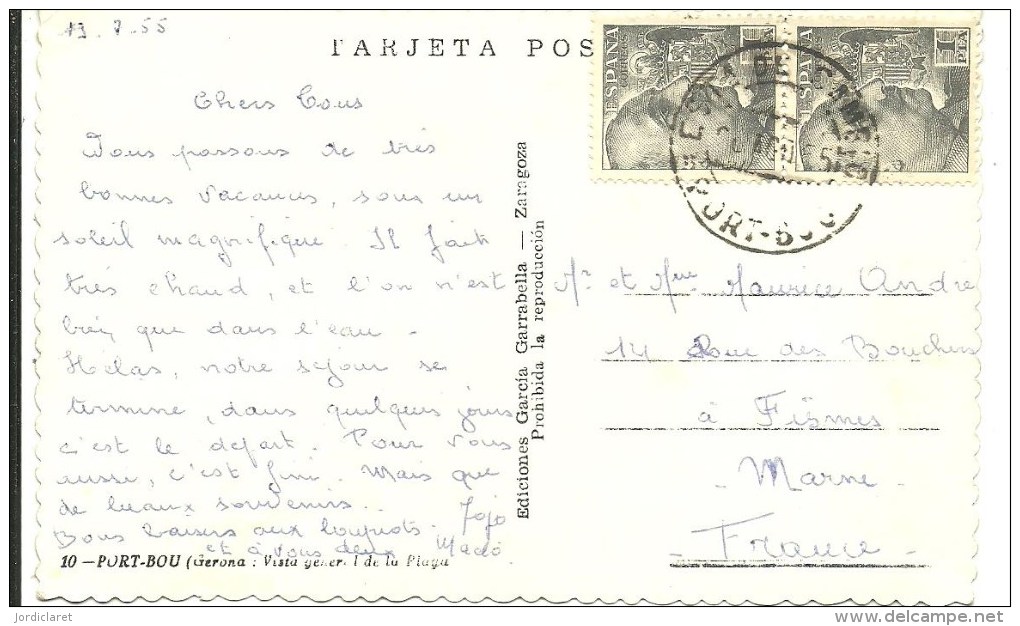 19.7.55
TARJETA POS
ESPAÑA
CORREOS
1 PTA
ESPAÑA
1 PTA
PORT-BOU
Chers Tous
Nous passons de très
bonnes vacances, sous un
soleil magnifique. Il fait
très chaud, et l'on n'est
bien que dans l'eau.
Hélas, notre séjour se
termine, dans quelques jours
c'est le départ. Pour vous
aussi, c'est fini. Mais que
de beaux souvenirs..
Bons baisers aux loupiots. Jojo
et à vous deux Mado
10 — PORT-BOU (Gerona: Vista general de la Playa
Ediciones García Garrabella — Zaragoza
Prohibida la reproducción
Mr et Mme Maurice André
14 Rue des Bouchers
à Fismes
- Marne -
- France -
jordiclaret
www.delcampe.net